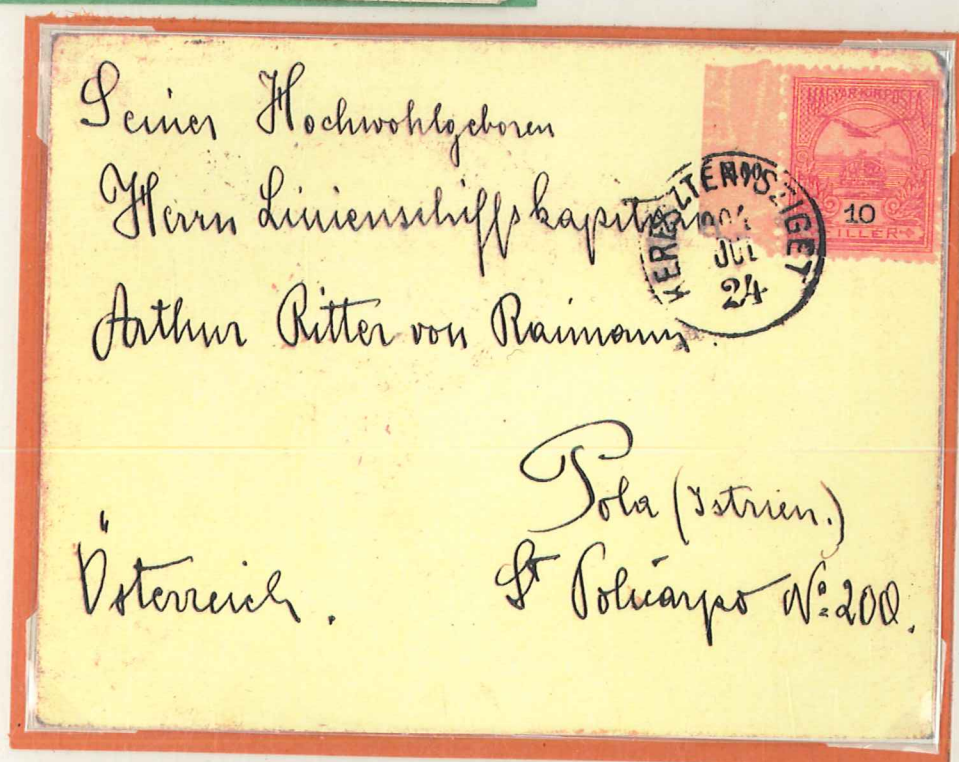 Seiner Hochwohlgeboren
Herrn Linienschiffskapitän
Arthur Ritter von Raimann.
Pola (Istrien.)
Österreich. St Policarpo No 200.
MAGYAR KIR. POSTA
10
FILLÉR
KERESZTÉNYSZIGET
904
JUL
24